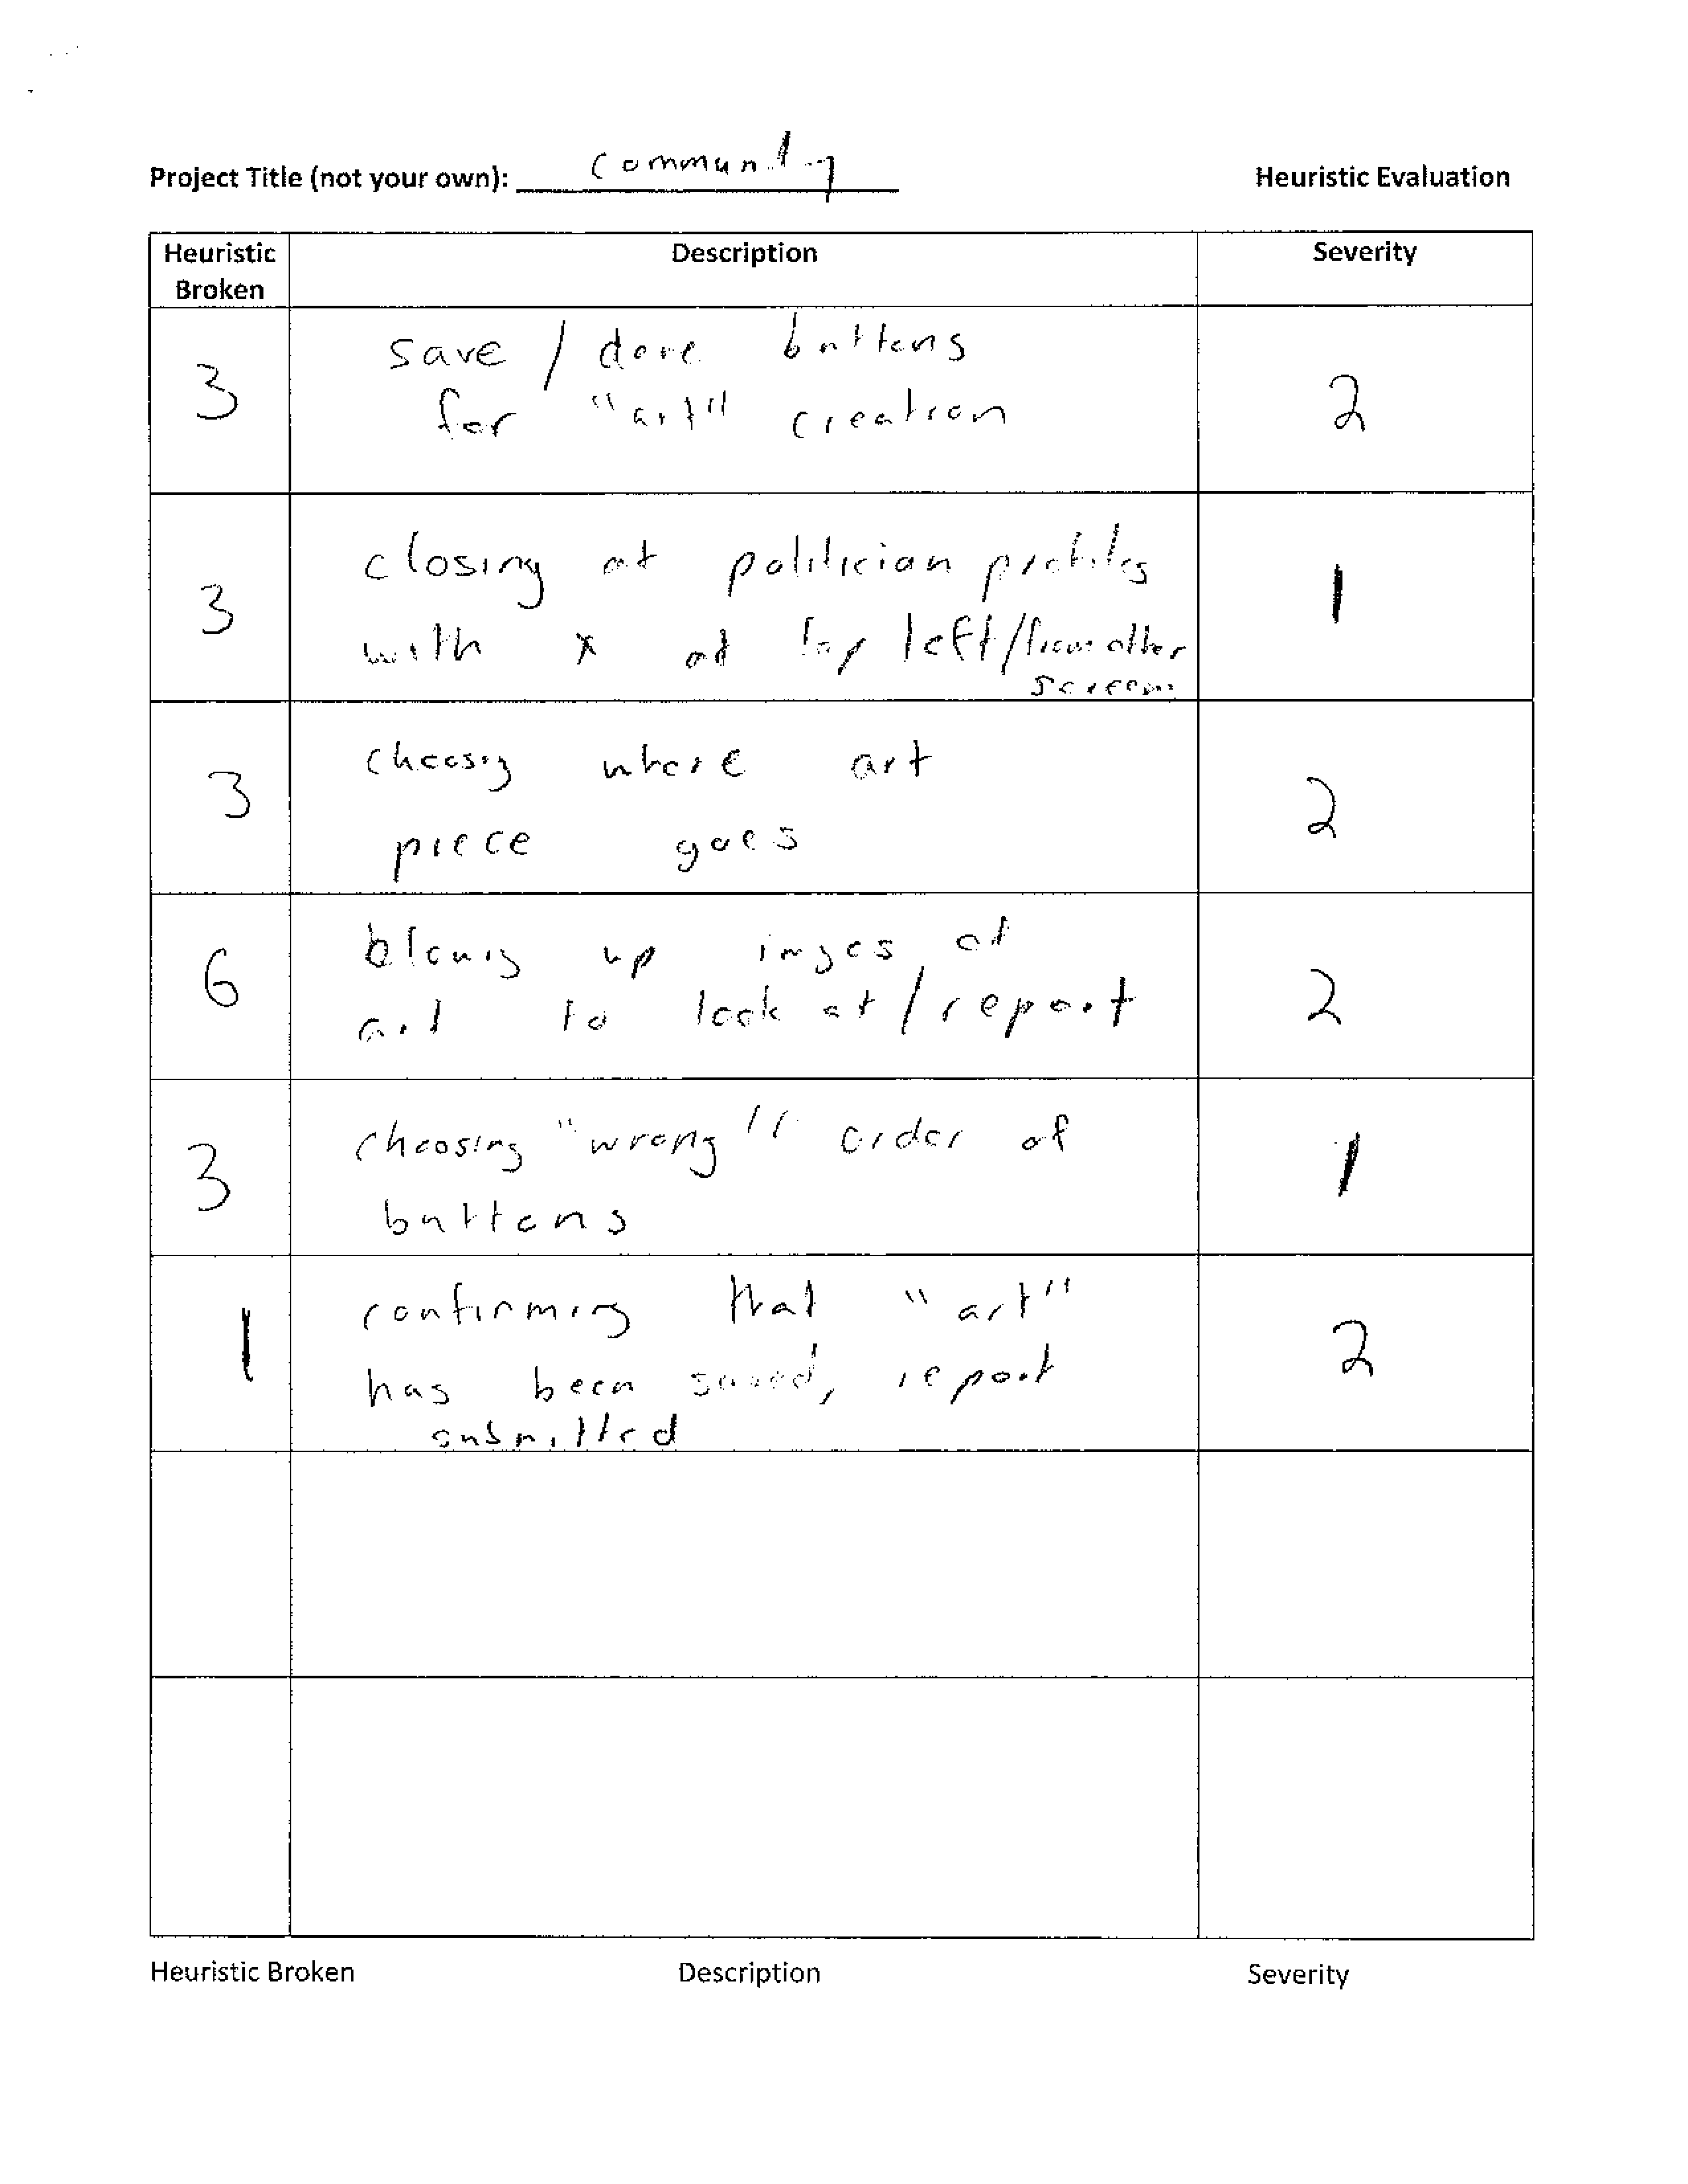 Project Title (not your own): community
Heuristic Evaluation
Heuristic Broken
Description
Severity
3
save / done buttons
for "art" creation
2
3
closing at politician profiles
with x at top left/from other
screens
1
3
choosing where art
piece goes
2
6
blowing up images of
art to look at / report
2
3
choosing "wrong" order of
buttons
1
1
confirming that "art"
has been saved, report
submitted
2
Heuristic Broken
Description
Severity